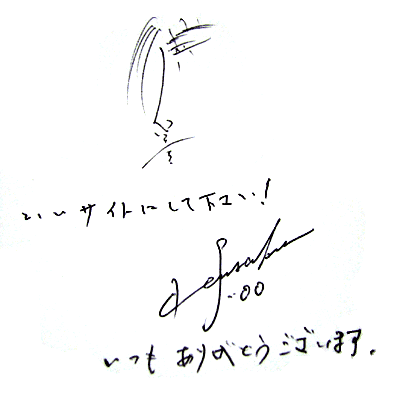 いいサイトにして下さい!
'00
いつもありがとうございます.